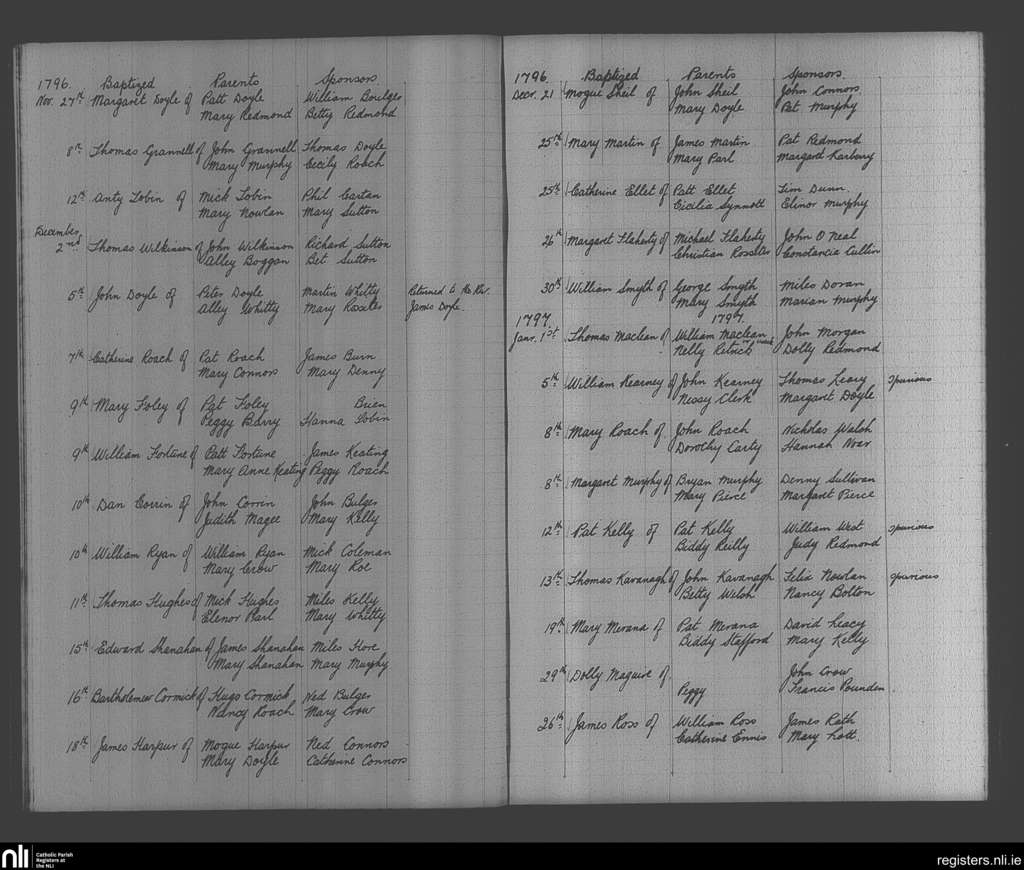 1796. Baptized Parents Sponsors
Nov. 27th Margaret Doyle of Patt Doyle William Boulger
Mary Redmond Betty Redmond
8th Thomas Grannell of John Grannell Thomas Doyle
Mary Murphy Cecily Roach
12th Anty Tobin of Mick Tobin Phil Cartan
Mary Nowlan Mary Sutton
December
2nd Thomas Wilkinson of John Wilkinson Richard Sutton
Alley Boggan Bet Sutton
5th John Doyle of Peter Doyle Martin Whitty Returned to the Rev.
Alley Whitty Mary James Doyle.
7th Catherine Roach of Pat Roach James Burn
Mary Connors Mary Denny
9th Mary Foley of Pat Foley Brien
Peggy Barry Hanna Tobin
9th William Fortune of Patt Fortune James Keating
Mary Anne Keating Peggy Roach
10th Dan Corrin of John Corrin John Bulger
Judith Magee Mary Kelly
10th William Ryan of William Ryan Mick Coleman
Mary Crow Mary Roe
11th Thomas Hughes of Mick Hughes Miles Kelly
Elenor Parl Mary Whitty
15th Edward Shanahan of James Shanahan Miles Hore
Mary Shanahan Mary Murphy
16th Bartholemew Cormick of Hugo Cormick Ned Bulger
Nancy Roach Mary Crow
18th James Harpur of Mogue Harpur Ned Connors
Mary Doyle Catherine Connors
1796 Baptized Parents Sponsors.
Decr. 21 Mogue Sheil of John Sheil John Connors
Mary Doyle Pat Murphy
25th Mary Martin of James Martin Pat Redmond
Mary Parl Margaret Karbury
25th Catherine Ellet of Patt Ellet Tim Dunn.
Cicilia Synnott Elinor Murphy
26th Margaret Flaherty of Michael Flaherty John O Neal
Christian Constancia Cullin
30th William Smyth of George Smyth Miles Doran
Mary Smyth Marian Murphy
1797. 1797.
Janr. 1st Thomas Maclean of William Maclean John Morgan
Nelly Dolly Redmond
5th William Kearney of John Kearney Thomas Leary spurious
Nessy Clerk Margaret Doyle
8th Mary Roach of John Roach Nicholas Walsh
Dorothy Carty Hannah
8th Margaret Murphy of Bryan Murphy Denny Sullivan
Mary Pierce Margaret Pierce
12th Pat Kelly of Pat Kelly William West spurious
Biddy Reilly Judy Redmond
13th Thomas Kavanagh of John Kavanagh Felix Nowlan spurious
Betty Welsh Nancy Bolton
19th Mary Merana of Pat Merana David Leacy
Biddy Stafford Mary Kelly
29th Dolly Maguire of John Crow
Peggy Francis Pounden
26th James Ross of William Ross James Rath
Catherine Ennis Mary Lott.
nli Catholic Parish
Registers at
the NLI
registers.nli.ie